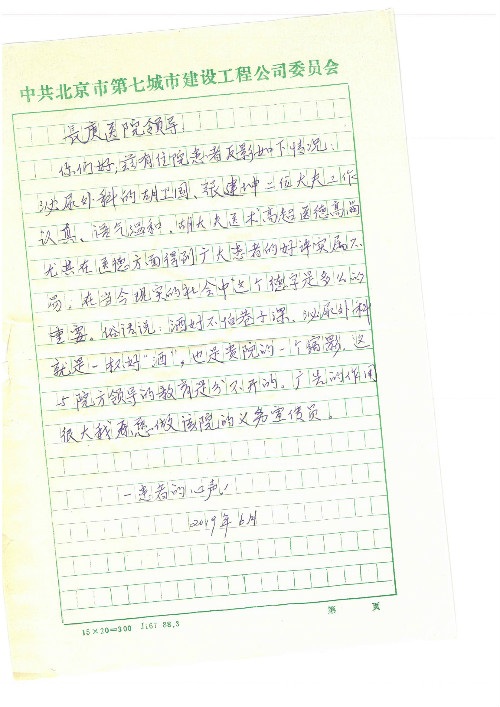 中共北京市第七城市建设工程公司委员会
长庚医院领导
你们好，兹有住院患者反影如下情况：
泌尿外科的胡卫国、张建坤二位大夫工作
认真、语气温和，胡大夫医术高超医德高尚
尤其在医德方面得到广大患者的好评实属不
易，在当今现实的社会中这个德字是多么的
重要。俗话说：酒好不怕巷子深、泌尿外科
就是一杯好“酒”，也是贵院的一个缩影，这
与院方领导的教育是分不开的。广告的作用
很大我愿意做该院的义务宣传员。
一患者的心声！
2019年6月
15×20=300
第 页